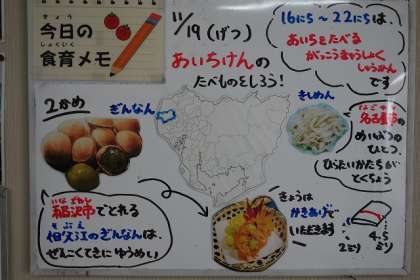 きょう
今日の
しょくいく
食育メモ
11/19(げつ)
あいちけんの
たべものをしろう!
16にち~22にちは、
あいちをたべる
がっこうきゅうしょく
しゅうかん
です
2かめ
ぎんなん
きしめん
なごやし
名古屋市の
めいぶつの
ひとつ。
ひらたいかたちが
とくちょう
いなざわし
稲沢市でとれる
そぶえ
祖父江のぎんなんは、
ぜんこくてきにゆうめい
きょうは
かきあげで
いただきます
2ミリ
4.5
ミリ